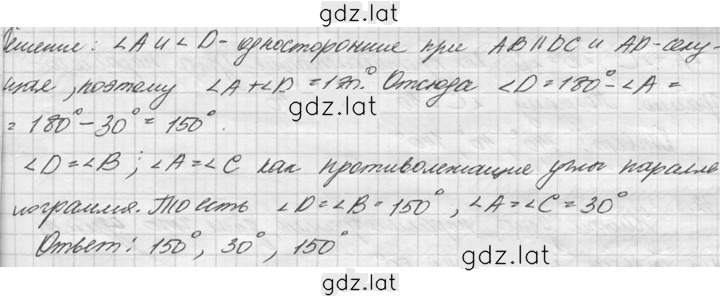 gdz.lat
Решение: ∠A и ∠D - односторонние при AB || DC и AD - секу-
щая, поэтому ∠A + ∠D = 180°. Отсюда ∠D = 180° - ∠A =
gdz.lat
= 180° - 30° = 150°.
∠D = ∠B; ∠A = ∠C как противолежащие углы паралле
лограмма. То есть ∠D = ∠B = 150°, ∠A = ∠C = 30°
gdz.lat
Ответ: 150°, 30°, 150°
gdz.lat